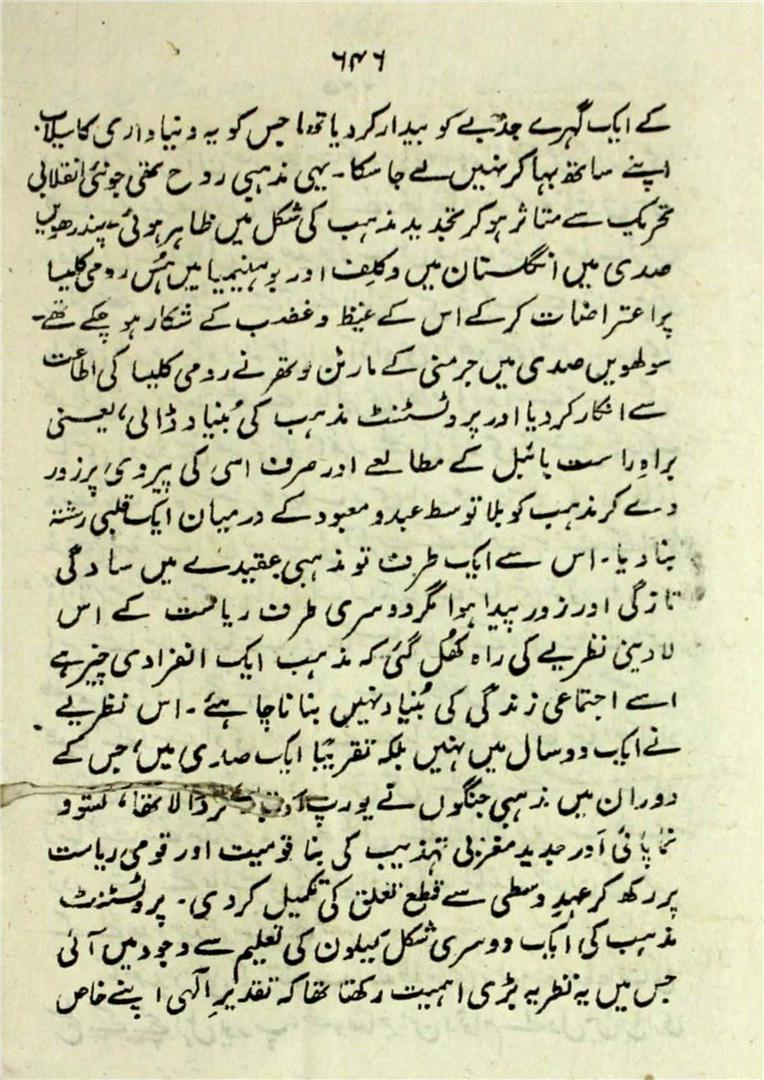 ۶۴۶
کے ایک گہرے جذبے کو بیدار کر دیا تھا جس کو یہ دنیا داری کا سیلاب
اپنے ساتھ بہا کر نہیں لے جا سکا۔ یہی مذہبی روح تھی جو نئی انقلابی
تحریک سے متاثر ہو کر تجدید مذہب کی شکل میں ظاہر ہوئی۔ پندرھویں
صدی میں انگلستان میں وکلِف اور بوہیمیا میں ہَس رومی کلیسا
پر اعتراضات کر کے اس کے غیظ و غضب کے شکار ہو چکے تھے۔
سولھویں صدی میں جرمنی کے مارٹن لوتھر نے رومی کلیسا کی اطاعت
سے انکار کر دیا اور پروٹسٹنٹ مذہب کی بُنیاد ڈالی، یعنی
براہِ راست بائبل کے مطالعے اور صرف اسی کی پیروی پر زور
دے کر مذہب کو بلا توسط عبد و معبود کے درمیان ایک قلبی رشتہ
بنا دیا۔ اس سے ایک طرف تو مذہبی عقیدے میں سادگی
تازگی اور زور پیدا ہوا مگر دوسری طرف ریاست کے اس
لادینی نظریے کی راہ کھُل گئی کہ مذہب ایک انفرادی چیز ہے
اسے اجتماعی زندگی کی بُنیاد نہیں بنانا چاہئے۔ اس نظریے
نے ایک دو سال میں نہیں بلکہ تقریبًا ایک صدی میں، جس کے
دوران میں مذہبی جنگوں نے یورپ کر ڈالا تھا، نشو و
نما پائی اور جدید مغربی تہذیب کی بنا قومیت اور قومی ریاست
پر رکھ کر عہدِ وسطی سے قطع تعلق کی تکمیل کر دی۔ پروٹسٹنٹ
مذہب کی ایک دوسری شکل کیلون کی تعلیم سے وجود میں آئی
جس میں یہ نظریہ بڑی اہمیت رکھتا تھا کہ تقدیرِ الٰہی اپنے خاص